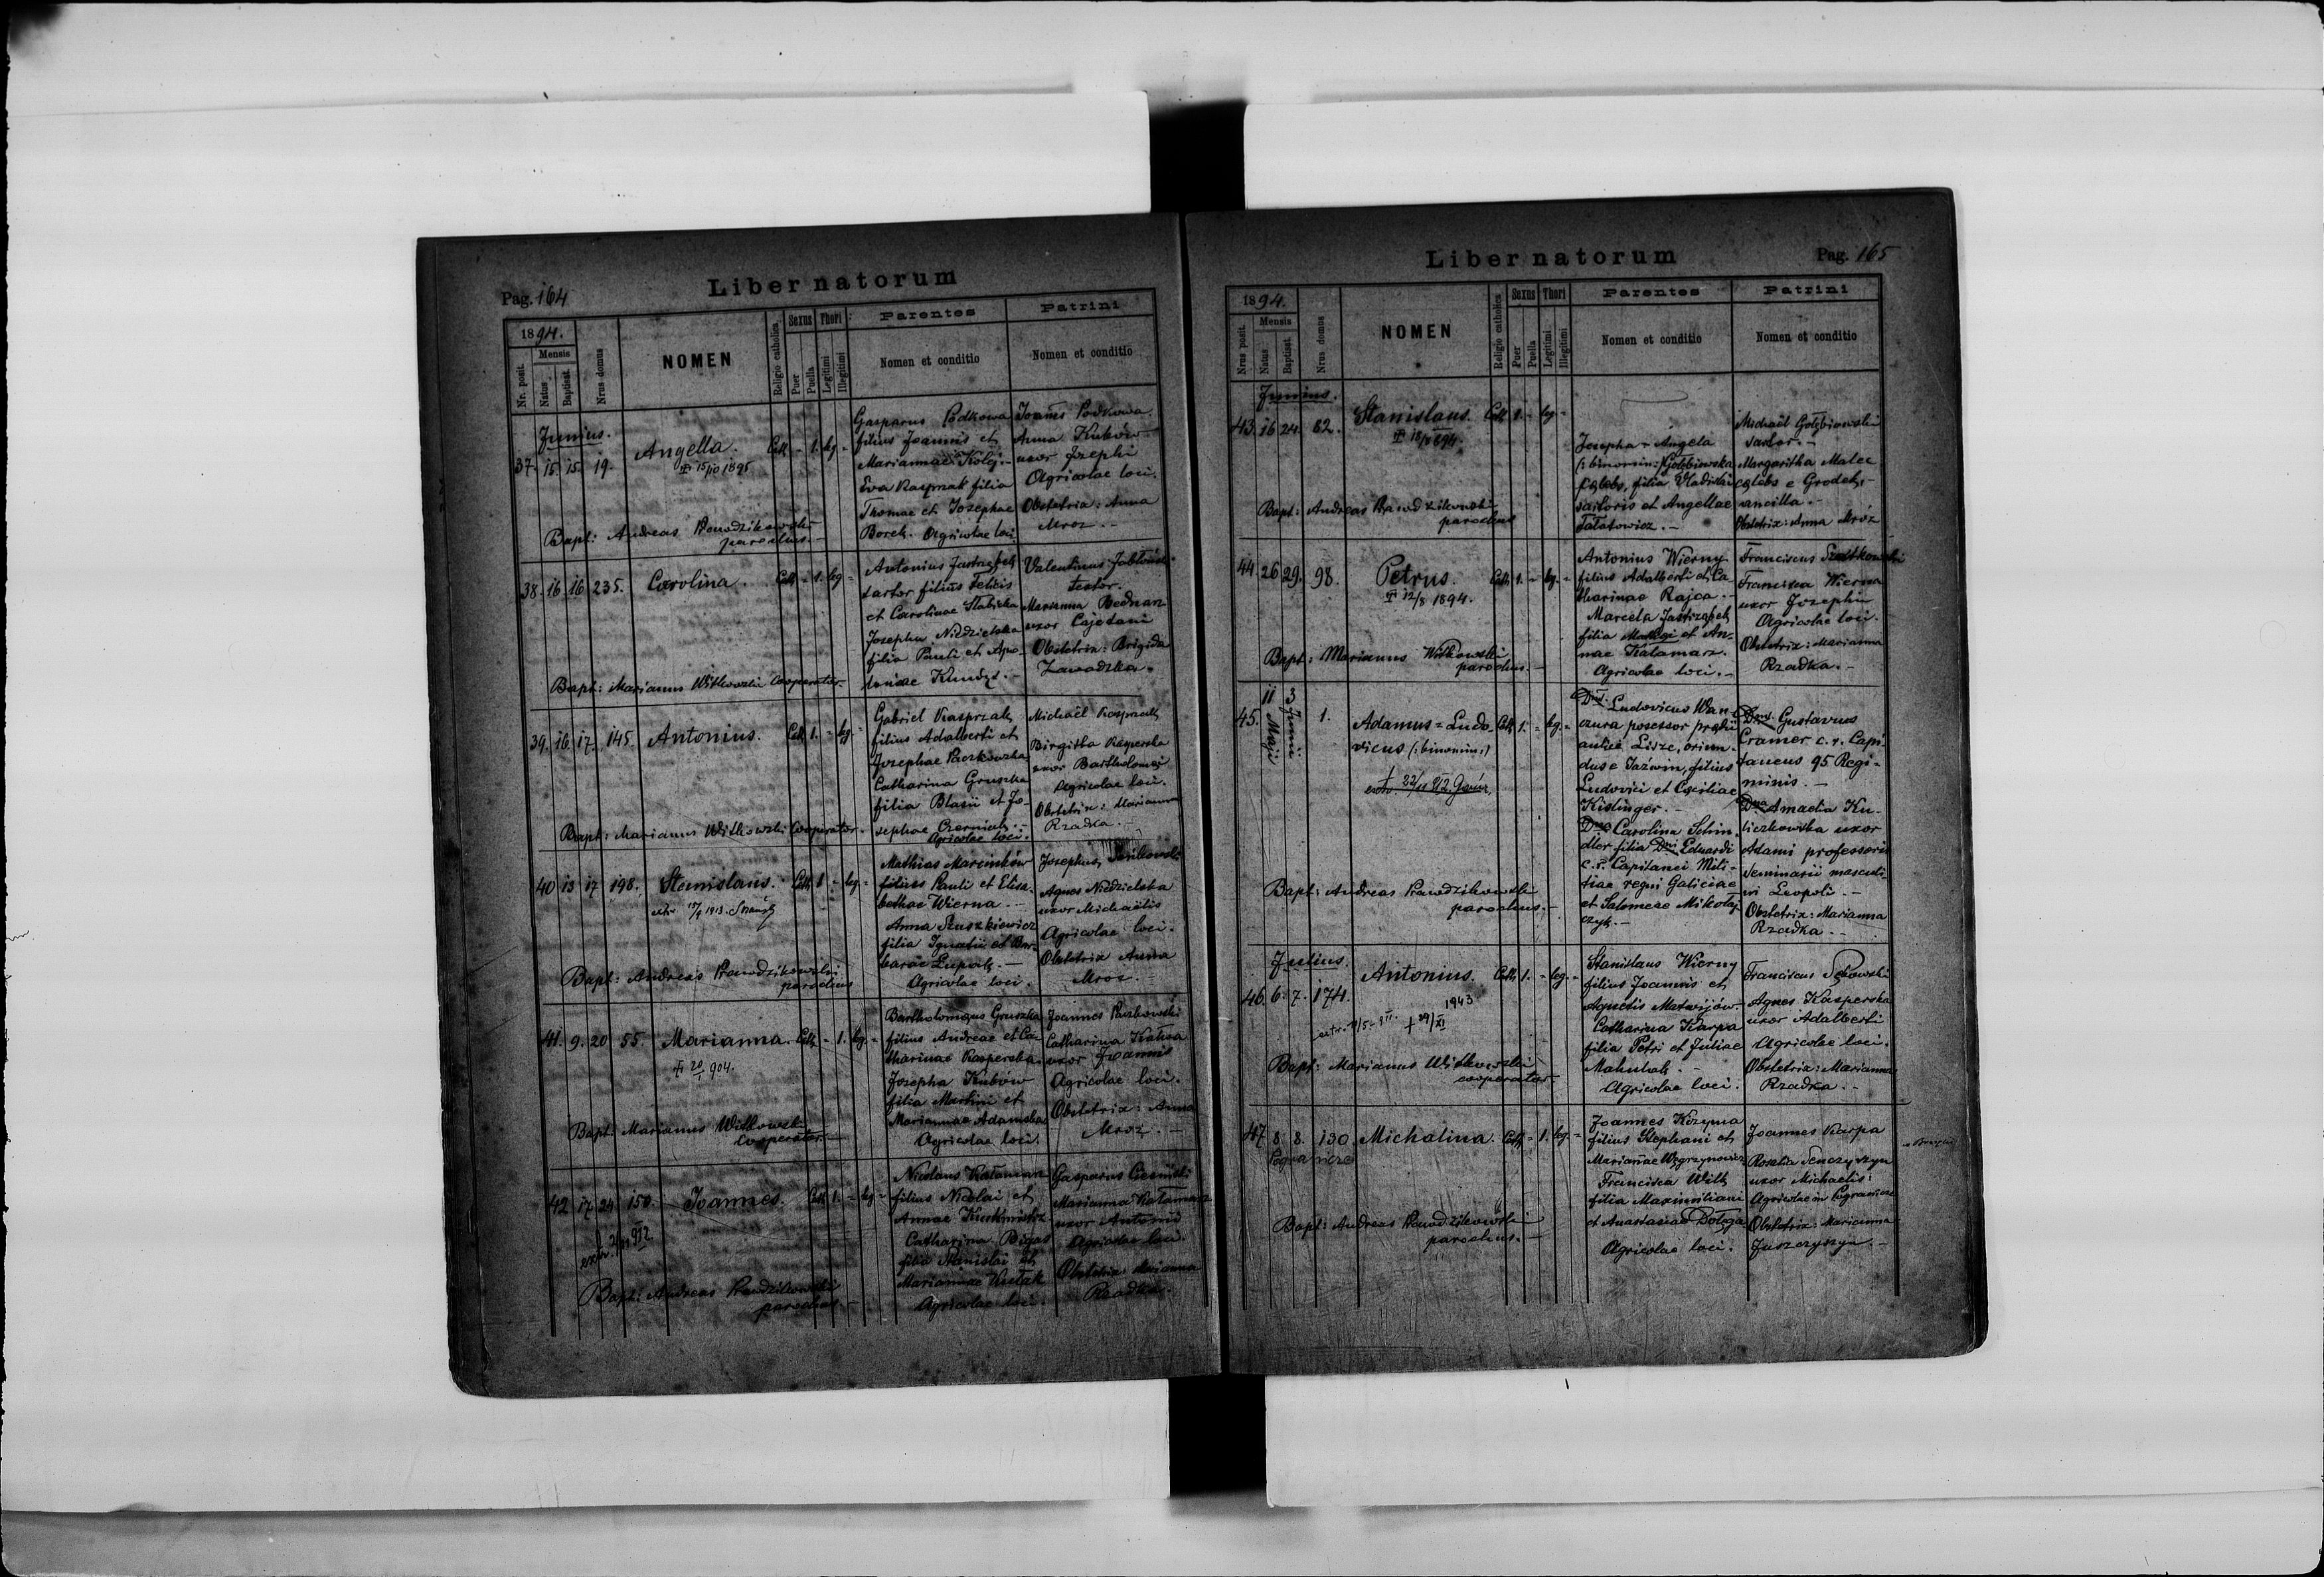 Pag. 164
Liber natorum
1894.
Nr. posit.
Mensis
Natus
Baptisat.
Nrus domus
NOMEN
Religio catholica
Sexus
Puer
Puella
Thori
Legitimi
Illegitimi
Parentes
Nomen et conditio
Patrini
Nomen et conditio
Junius.
37. 15. 15. 19. Angella. Cath - 1. leg -
15/10 1895
Gasparus Podkowa
filius Joannis et
Mariannae Kolej.-
Eva Kasprzak filia
Thomae et Josephae
Borek. Agricolae loci.
Joannes Podkowa
Anna Kuków
uxor Josephi
Agricolae loci.
Obstetrix: Anna
Mroz.-
Bapt: Andreas Prawdzikowski
parochus.-
38. 16. 16. 235. Carolina. Cath - 1. leg -
Antonius Jastrzębek
sartor filius Felicis
et Carolinae
Josepha Niedzielska
filia Pauli et Apo-
loniae
Valentinus Jabłoński
textor.
Marianna Bednarz
uxor Cajetani
Obstetrix: Brigida
Zawadzka.
Bapt: Marianus Witkowski Cooperator.
39. 16. 17. 145. Antonius. Cath 1. - leg -
Gabriel Kasprzak
filius Adalberti et
Josephae Paczkowska
Catharina Gruszka
filia Blasii et Jo-
sephae Czerniak.-
Agricolae loci.
Michaël Kasprzak
Birgitta Kasperska
uxor Bartholomaei
Agricolae loci.
Obstetrix: Marianna
Rzadka.-
Bapt: Marianus Witkowski Cooperator.
40 13 17 198. Stanislaus. Cath 1 - leg -
Mathias Marcinków
filius Pauli et Elisa-
bethae Wierna.-
Anna Szuszkiewicz
filia Ignatii et Bar-
barae Lupak.-
Agricolae loci.
Josephus
Agnes Niedzielska
uxor Michaëlis
Agricolae loci.
Obstetrix Anna
Mroz.-
Bapt: Andreas Prawdzikowski
parochus
41. 9. 20 55 Marianna. Cath - 1. leg -
20/I 904.
Bartholomaeus Gruszka
filius Andreae et Ca-
tharinae Kasperska.
Josepha Kubów
filia Martini et
Mariannae Adamska
Agricolae loci.
Joannes Paczkowski
Catharina
uxor Joannis
Agricolae loci.
Obstetrix: Anna
Mroz.-
Bapt: Marianus Witkowski
Cooperator.-
42 17 24 150 Joannes. Cath 1. - leg -
Nicolaus Katamarz
filius Nicolai et
Annae
Catharina Bigas
filia Stanislai et
Mariannae
Agricolae loci.
Gasparus
Marianna Katamarz
uxor Antonii
Agricolae loci.
Obstetrix: Marianna
Rzadka.
Bapt: Andreas Prawdzikowski
parochus.-
Liber natorum
Pag. 165
1894.
Nrus posit.
Mensis
Natus
Baptisat.
Nrus domus
NOMEN
Religio catholica
Sexus
Puer
Puella
Thori
Legitimi
Illegitimi
Parentes
Nomen et conditio
Patrini
Nomen et conditio
Junius.
43. 16 24. 62. Stanislaus. Cath 1. - leg -
Josepha-Angela
(: binomin:) Gołębiowska
caelebs, filia Vladislai
sartoris et Angellae
Fałatowicz.-
Michaël Gołębiowski
sartor.-
Margaritha Malec
caelebs e Grodek,
ancilla.-
Obstetrix: Anna Mróz
Bapt: Andreas Prawdzikowski
parochus
44. 26 29. 98. Petrus. Cath 1. - leg. -
12/8 1894.
Antonius Wierny
filius Adalberti et Ca-
tharinae Rajca.-
Marcela Jastrząbek
filia et An-
nae Katamarz.
Agricolae loci.-
Franciscus
Francisca Wierna
uxor Josephi
Agricolae loci.
Obstetrix: Marianna
Rzadka.-
Bapt: Marianus Witkowski
parochus.-
45. 11 Maji 3 Junii 1. Adamus=Ludo- Cath 1. - leg. -
vicus (: binomin:)
Ludovicus Wan-
czura posessor praedii
aulicae, oriun-
dus e Jaźwin, filius
Ludovici et Caeciliae
Kislinger.-
Dna Carolina Schin-
dler filia Dni Eduardi
c. r. Capitanei Mili-
tiae regni Galiciae
et Salomeae Mikołaj-
czyk.-
Gustavus
Cramer c. r. Capi-
taneus 95 Regi-
minis.-
Dna Amalia Ku-
liczkowska uxor
Adami professoris
Seminarii masculi-
ni Leopoli.-
Obstetrix: Marianna
Rzadka.-
Bapt: Andreas Prawdzikowski
parochus.-
Julius.
46. 6. 7. 174. Antonius. Cath 1. - leg. -
1943
+ 29/XI
Stanislaus Wierny
filius Joannis et
Agnetis Matwijów.-
Catharina Karpa
filia Petri et Juliae
Mahuhak.-
Agricolae loci.
Franciscus
Agnes Kasperska
uxor Adalberti
Agricolae loci.
Obstetrix: Marianna
Rzadka.-
Bapt: Marianus Witkowski
cooperator.
47. 8 8. 130. Michalina. Cath - 1. leg. -
Pogranicze
Joannes Kozyma
filius Stephani et
Mariannae Węgrzynowicz
Francisca Wilk
filia Maximiliani
et Anastasiae Dołęga
Agricolae loci.
Joannes Karpa
Rosalia Senczyszyn
uxor Michaelis:
Agricolae in Pogranicze
Obstetrix: Marianna
Juszczyszyn.-
Bapt: Andreas Prawdzikowski
parochus.-